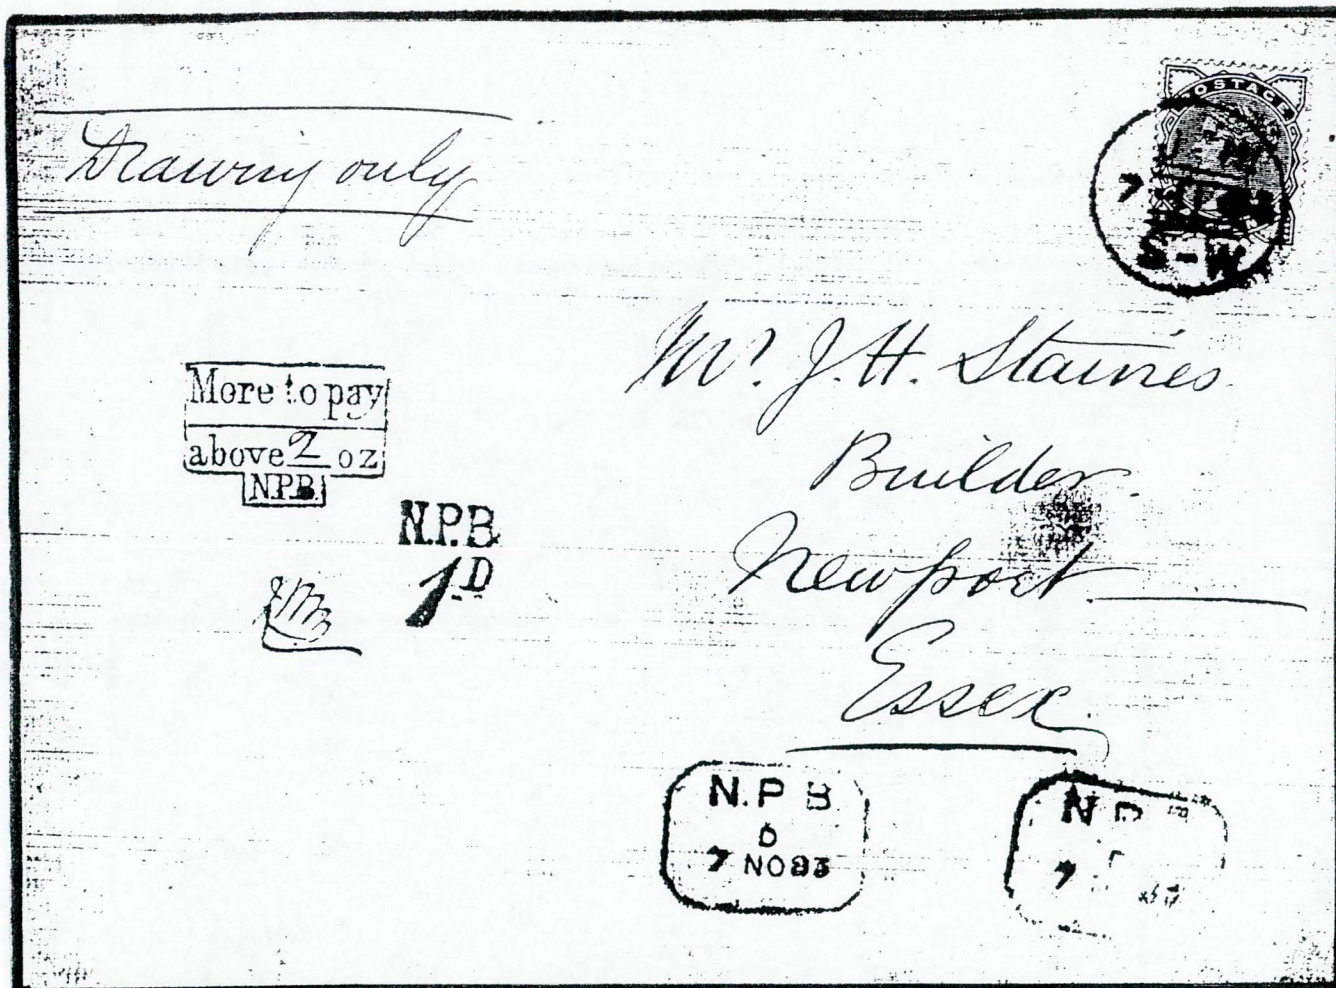 POSTAGE
Drawing only
7
S-W
Mr. J. H. Staines
Builder
Newport
Essex
More to pay
above 2 oz
N.P.B.
N.P.B
1D
N.P B
D
7 NO 83
N P
7